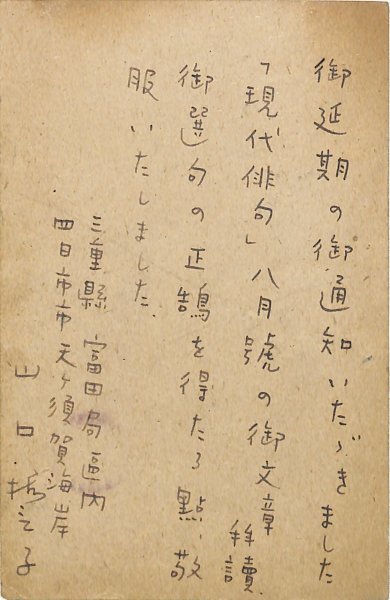 御延期の御通知いたゞきました
「現代俳句」八月號の御文章 拜讀
御選句の正鵠を得たる點、敬
服いたしました、
三重縣 富田局區内
四日市市天ヶ須賀海岸
山口誓子